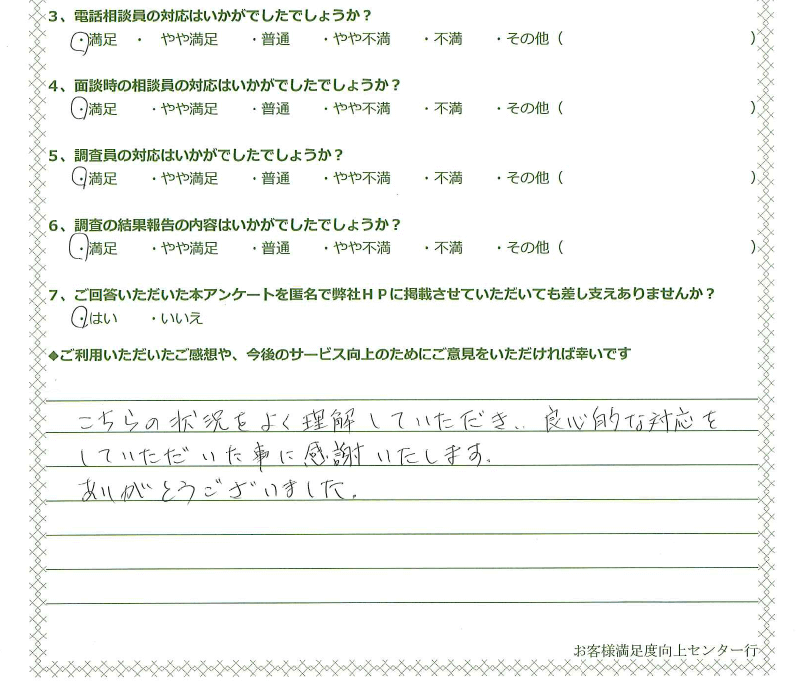 3、電話相談員の対応はいかがでしたでしょうか？
・満足　・　やや満足　・普通　・やや不満　・不満　・その他（　）
4、面談時の相談員の対応はいかがでしたでしょうか？
・満足　・やや満足　・普通　・やや不満　・不満　・その他（　）
5、調査員の対応はいかがでしたでしょうか？
・満足　・やや満足　・普通　・やや不満　・不満　・その他（　）
6、調査の結果報告の内容はいかがでしたでしょうか？
・満足　・やや満足　・普通　・やや不満　・不満　・その他（　）
7、ご回答いただいた本アンケートを匿名で弊社ＨＰに掲載させていただいても差し支えありませんか？
・はい　・いいえ
◆ご利用いただいたご感想や、今後のサービス向上のためにご意見をいただければ幸いです
こちらの状況をよく理解していただき、良心的な対応を
していただいた事に感謝いたします。
ありがとうございました。
お客様満足度向上センター行